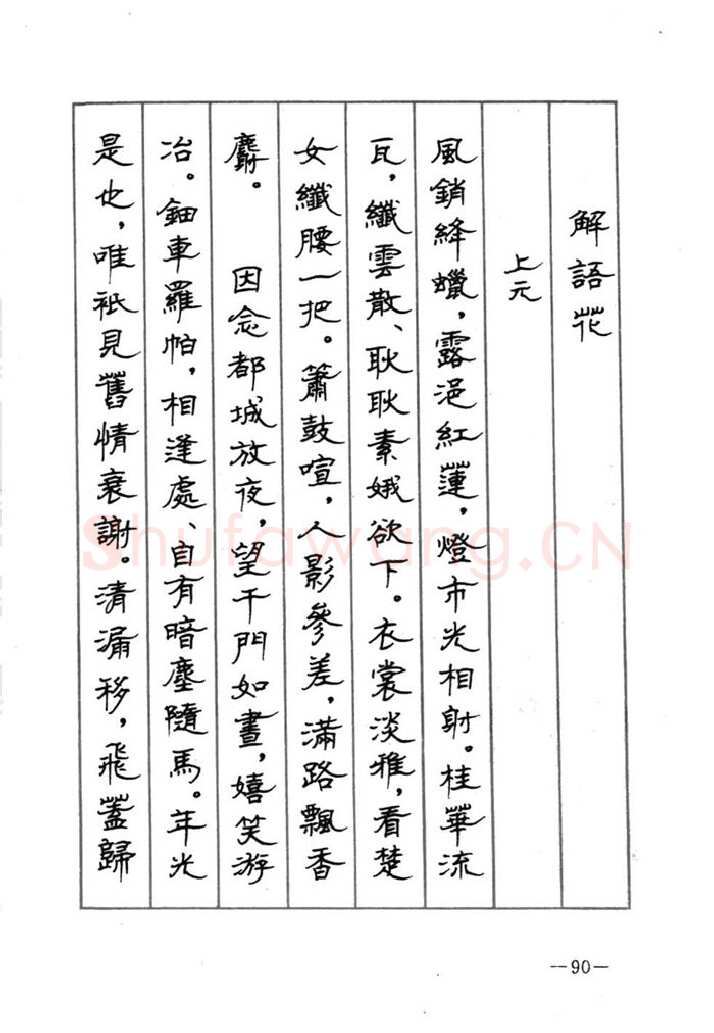 解語花
上元
風銷絳蠟，露浥紅蓮，燈市光相射。桂華流
瓦，纖雲散、耿耿素娥欲下。衣裳淡雅，看楚
女纖腰一把。簫鼓喧，人影參差，滿路飄香
麝。　因念都城放夜，望千門如晝，嬉笑游
冶。鈿車羅帕，相逢處、自有暗塵隨馬。年光
是也，唯衹見舊情衰謝。清漏移，飛蓋歸
Shufawang.CN
—90—